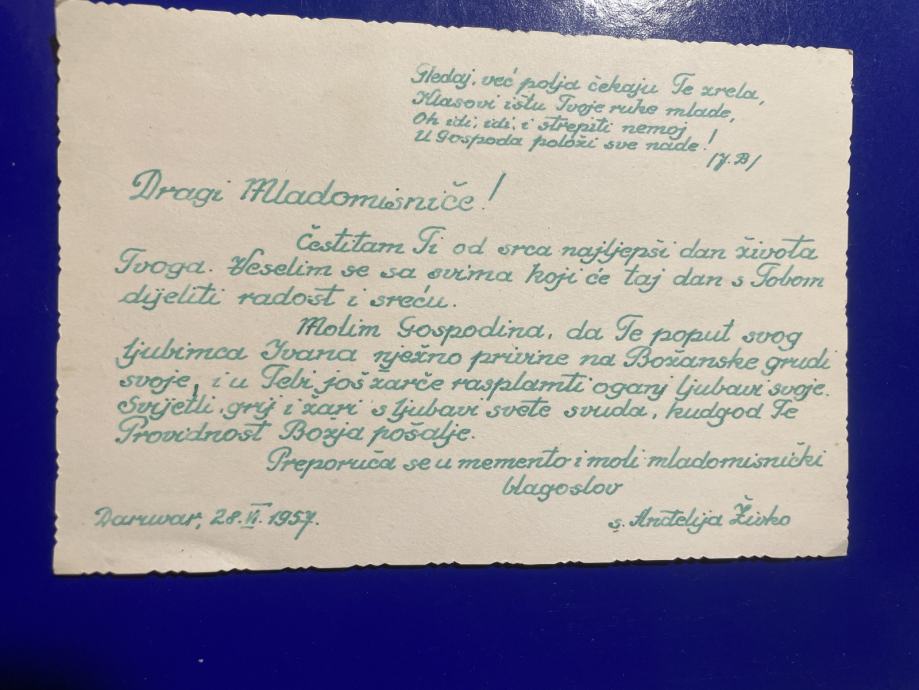 Gledaj, već polja čekaju Te zrela,
Klasovi ištu Tvoje ruke mlade,
Oh idi, idi, i strepiti nemoj
U Gospoda položi sve nade!
/J.B/
Dragi Mladomisniče!
Čestitam Ti od srca najljepši dan života
Tvoga. Veselim se sa svima koji će taj dan s Tobom
dijeliti radost i sreću.
Molim Gospodina, da Te poput svog
ljubimca Ivana nježno privine na Božanske grudi
svoje, i u Tebi još žarče rasplamti oganj ljubavi svoje.
Svijetli, grij i žari s ljubavi svete svuda, kudgod Te
Providnost Božja pošalje.
Preporuča se u memento i moli mladomisnički
blagoslov
Daruvar, 28.VI.1957.
s. Anđelija Živko